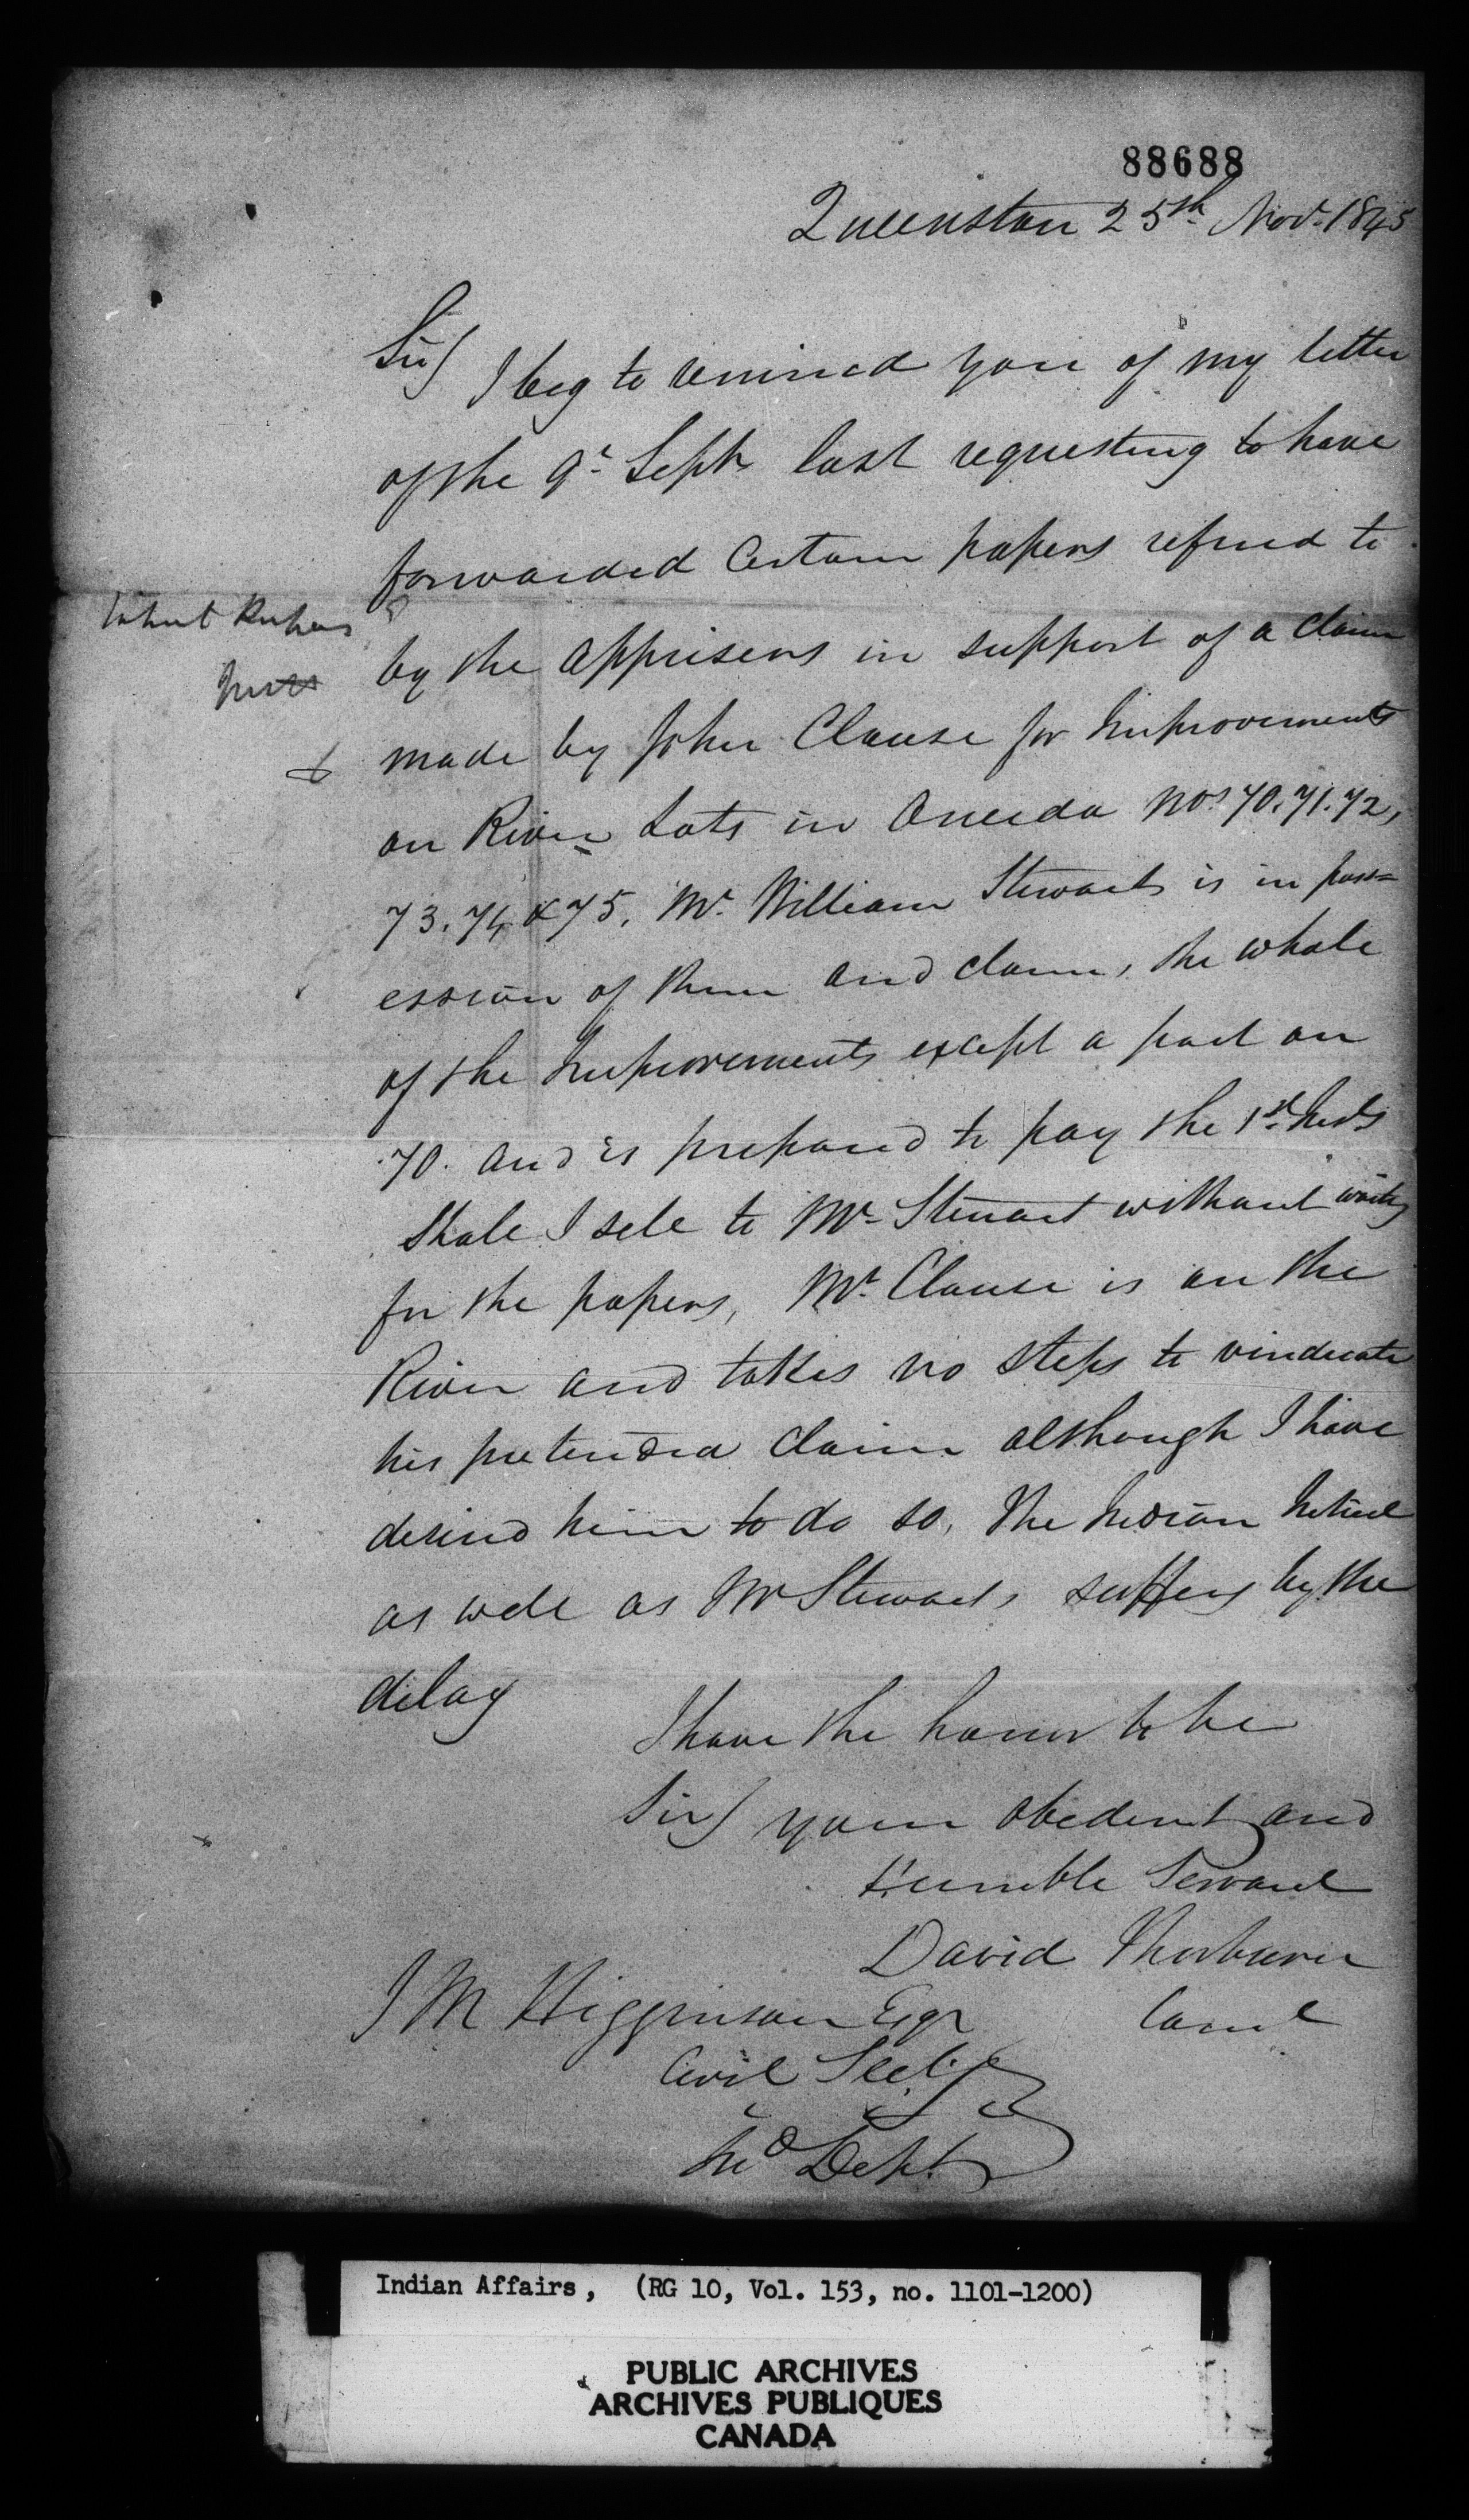 88688
Queenston 25th Novr 1845
Sir/ I beg to remind you of my letter
of the 9th Septr last requesting to have
forwarded Certain papers refered to
by the apprisers in support of a claim
made by John Clause for Improvements
on River Lots in Oneida Nos 70. 71. 72,
73. 74 & 75. Mr. William Stewart is in poss=
ession of them and claims the whole
of the Improvements except a part on
70. and is prepared to pay the 1st
Shall I sell to Mr Stewart without waiting
for the papers, Mr. Clause is on the
River and takes no steps to vindicate
his pretended claim although I have
desired him to do so, The Indian Interest
as well as Mr Stewarts suffers by the
delay
I have the honor to be
Sir/ your obedient and
Humble Servant
David Thorburn
Comr
J M Higginson Esqr
Civil Secty
&c
Ind Dept
What Papers
Indian Affairs, (RG 10, Vol. 153, no. 1101-1200)
PUBLIC ARCHIVES
ARCHIVES PUBLIQUES
CANADA